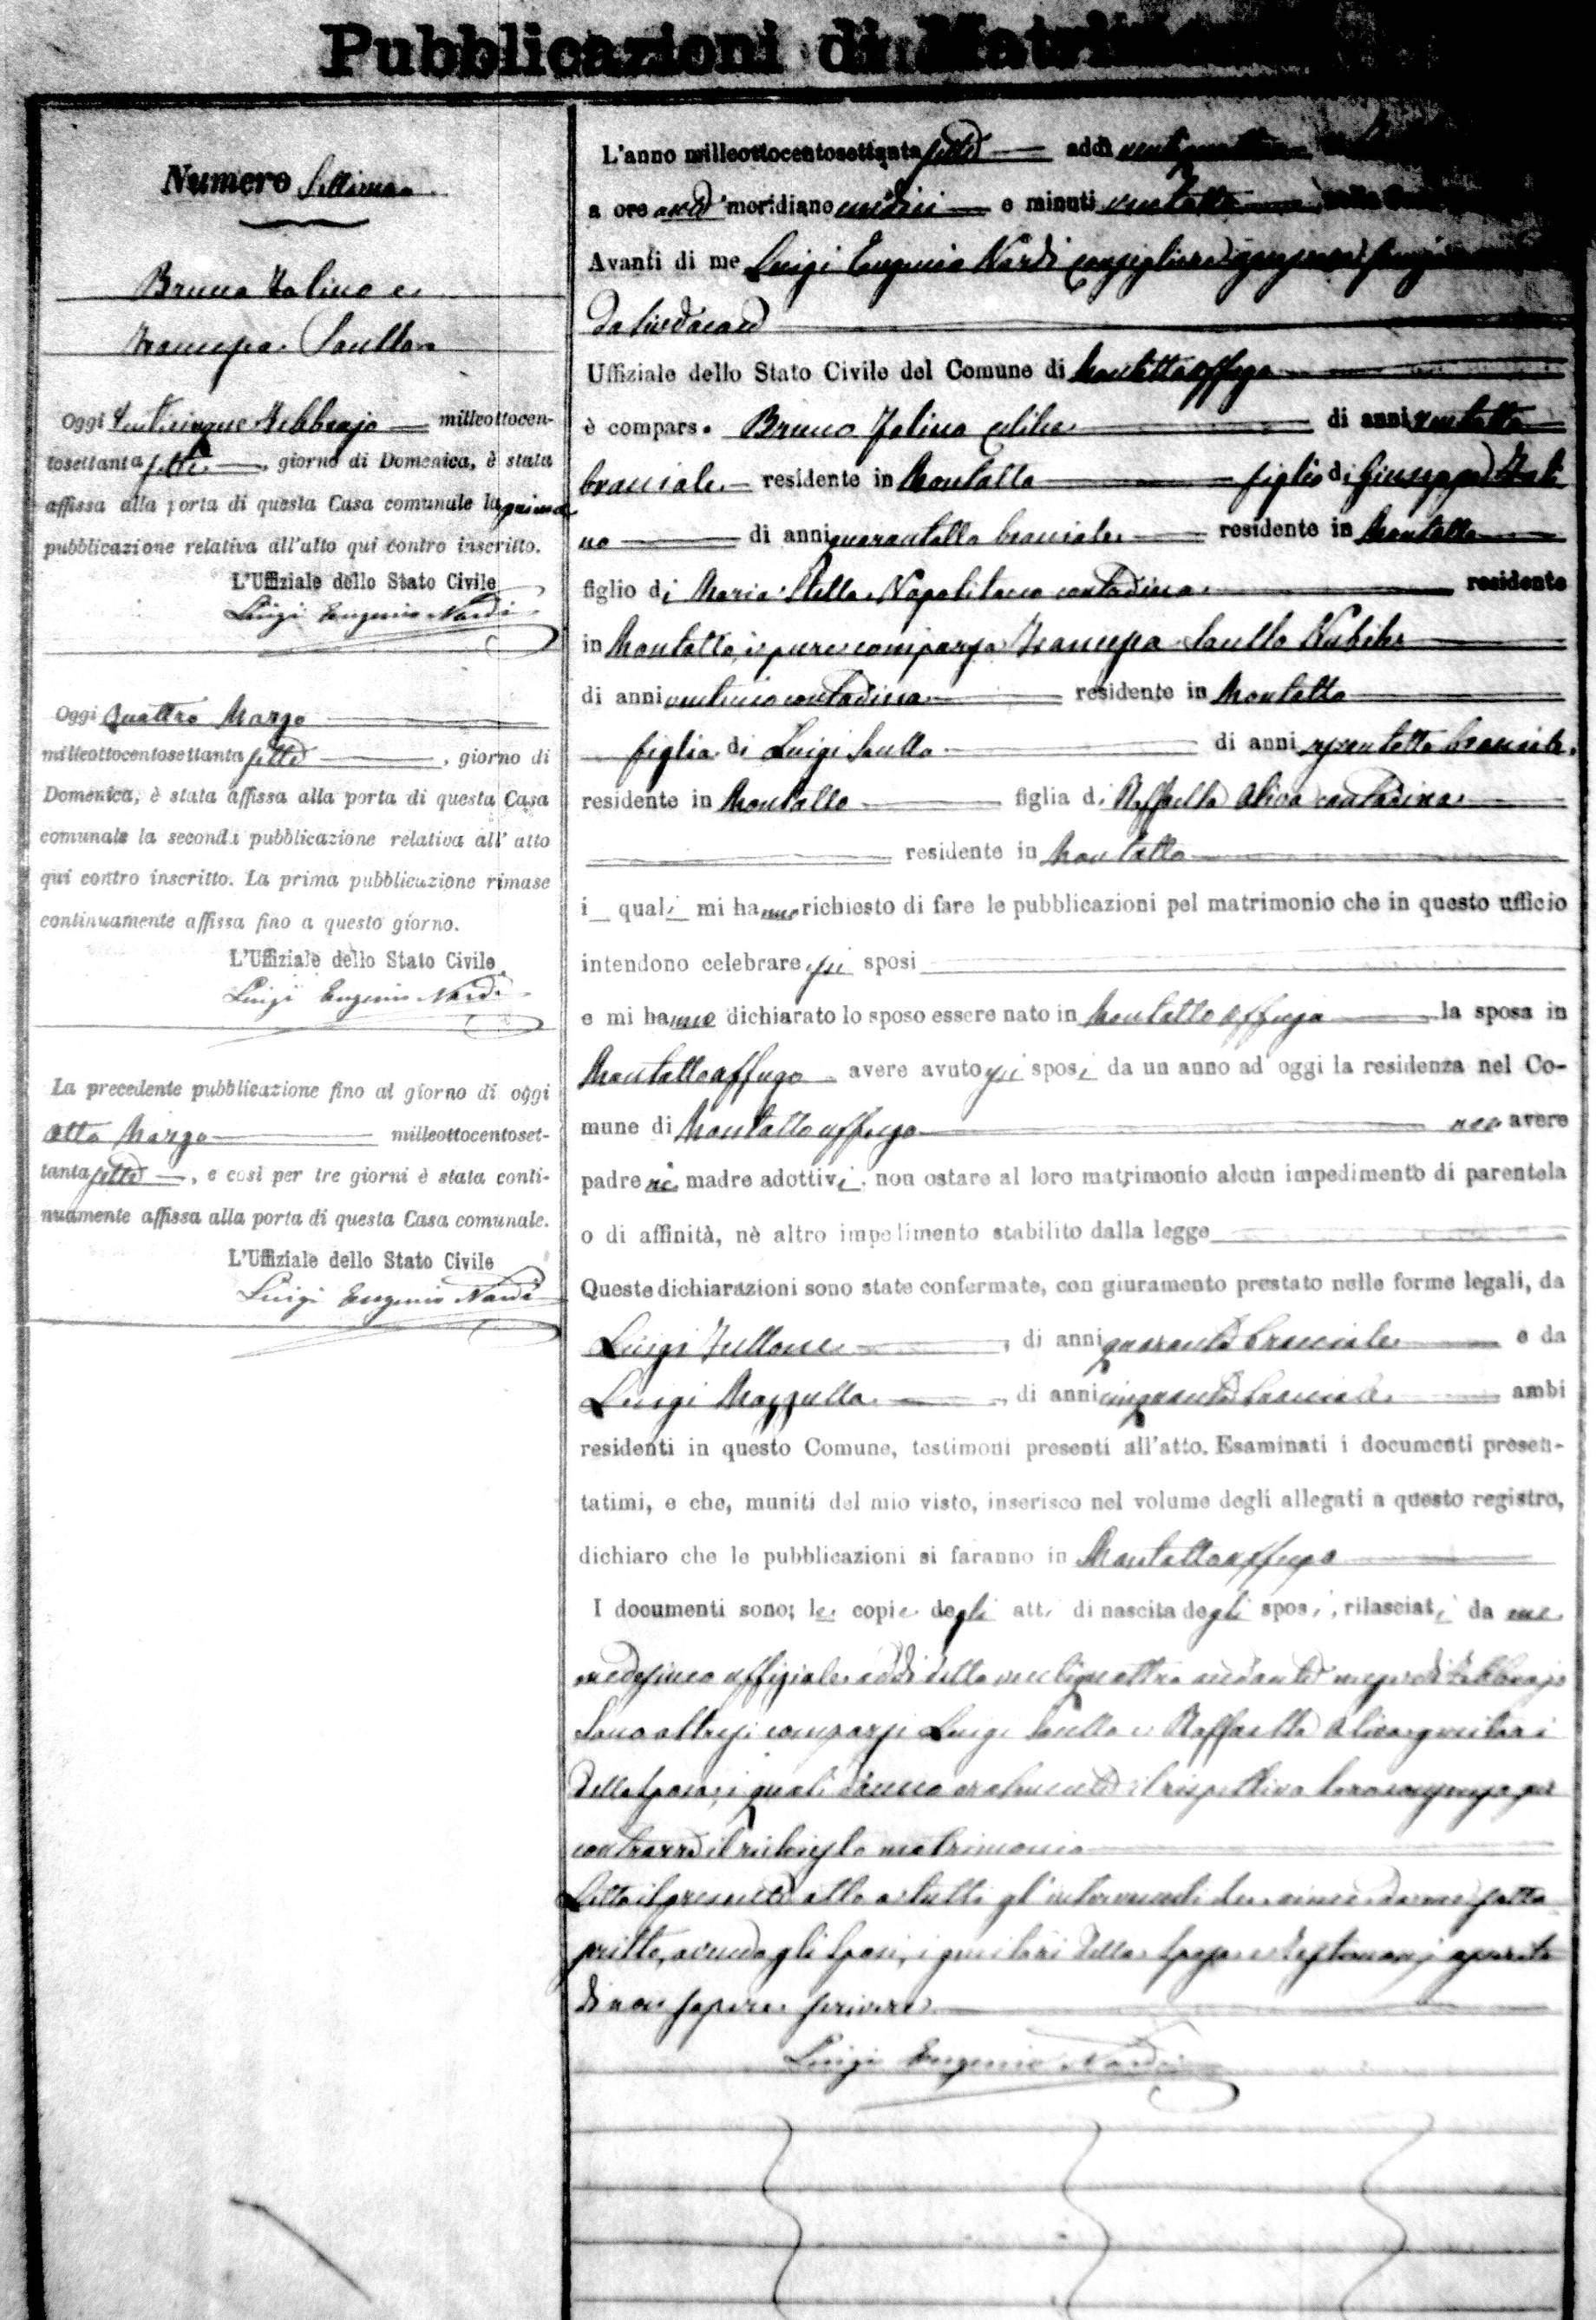 Pubblicazioni di Matrim
Numero Settimo
Bruno Talino e
Francesca Saullo
Oggi Venticinque Febbrajo milleottocen-
tosettanta sette, giorno di Domenica, è stata
affissa alla porta di questa Casa comunale la prima
pubblicazione relativa all'atto qui contro inscritto.
L'Uffiziale dello Stato Civile
Luigi Eugenio Nardi
Oggi Quattro Marzo
milleottocentosettanta sette, giorno di
Domenica, è stata affissa alla porta di questa Casa
comunale la seconda pubblicazione relativa all' atto
qui contro inscritto. La prima pubblicazione rimase
continuamente affissa fino a questo giorno.
L'Uffiziale dello Stato Civile
Luigi Eugenio Nardi
La precedente pubblicazione fino al giorno di oggi
otto Marzo milleottocentoset-
tanta sette, e così per tre giorni è stata conti-
nuamente affissa alla porta di questa Casa comunale.
L'Uffiziale dello Stato Civile
Luigi Eugenio Nardi
L'anno milleottocentosettanta sette addì ventiquattro
a ore anti meridiane undici e minuti ventotto nella
Avanti di me Luigi Eugenio Nardi consigliere
da Sindaco
Uffiziale dello Stato Civile del Comune di Montaltouffugo
è compars o Bruno Talino celibe di anni ventotto
bracciale residente in Montalto figlio di Giuseppe Tali
no di anni quarantotto bracciale residente in Montalto
figlio di Maria Stella Napolitano contadina residente
in Montalto, è pure comparsa Francesca Saullo Nubile
di anni contadina residente in Montalto
figlia di Luigi Saullo di anni bracciale
residente in Montalto figlia di Raffaella Oliva contadina
residente in Montalto
i quali mi hanno richiesto di fare le pubblicazioni pel matrimonio che in questo ufficio
intendono celebrare gli sposi
e mi hanno dichiarato lo sposo essere nato in Montalto Uffugo la sposa in
Montaltouffugo avere avuto gli sposi da un anno ad oggi la residenza nel Co-
mune di Montaltouffugo non avere
padre nè madre adottivi, non ostare al loro matrimonio alcun impedimento di parentela
o di affinità, nè altro impedimento stabilito dalla legge
Queste dichiarazioni sono state confermate, con giuramento prestato nelle forme legali, da
Luigi Tullone, di anni quaranta bracciale e da
Luigi Mazzulla, di anni cinquanta bracciale ambi
residenti in questo Comune, testimoni presenti all'atto. Esaminati i documenti presen-
tatimi, e che, muniti del mio visto, inserisco nel volume degli allegati a questo registro,
dichiaro che le pubblicazioni si faranno in Montaltouffugo
I documenti sono; le copie degli atti di nascita degli sposi, rilasciati da me
medesimo uffiziale addì detto ventiquattro andante mese di Febbrajo
Sono altresì comparsi Luigi Saullo e Raffaella Oliva genitori
della sposa, i quali danno oralmente il rispettivo loro consenso per
contrarre il richiesto matrimonio
Letto il presente atto a tutti gl'intervenuti da me
scritto, avendo gli sposi, i genitori della sposa e testimonj asserito
di non sapere scrivere
Luigi Eugenio Nardi